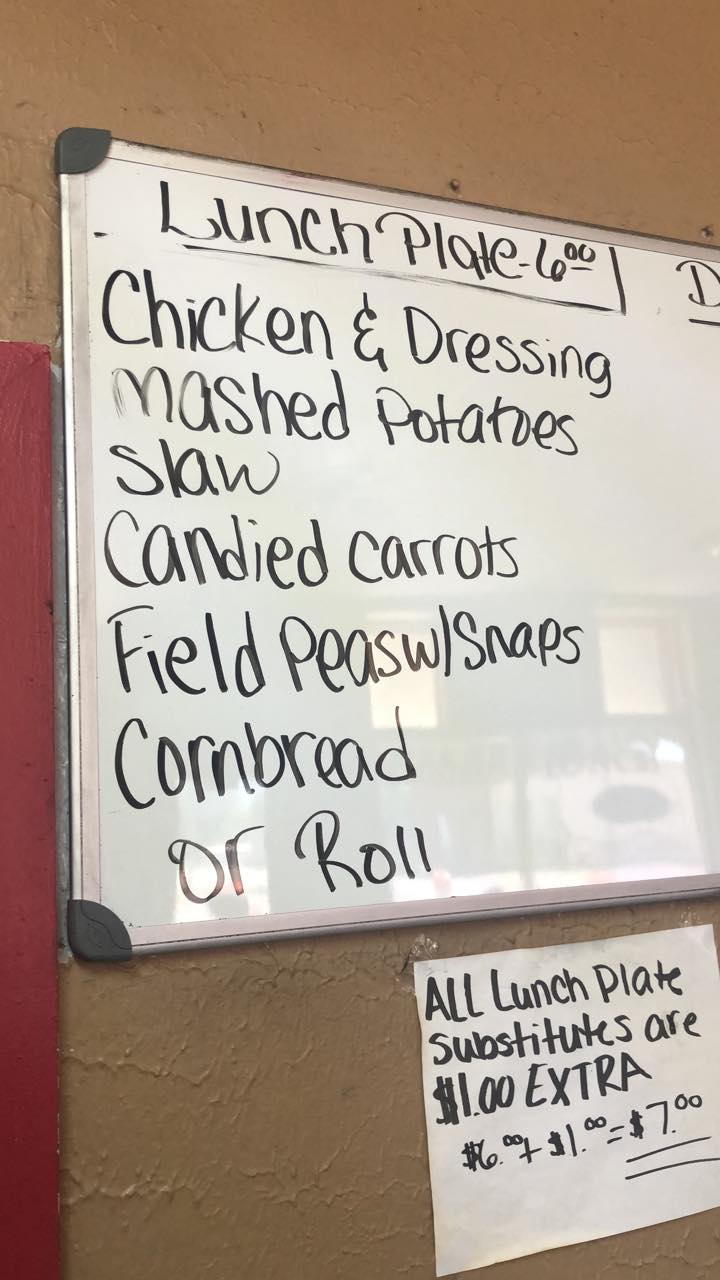 Lunch Plate - 6.00
D
Chicken & Dressing
Mashed Potatoes
Slaw
Candied Carrots
Field Peas w/Snaps
Cornbread
or Roll
ALL Lunch Plate
substitutes are
$1.00 EXTRA
$6.00 + $1.00 = $7.00